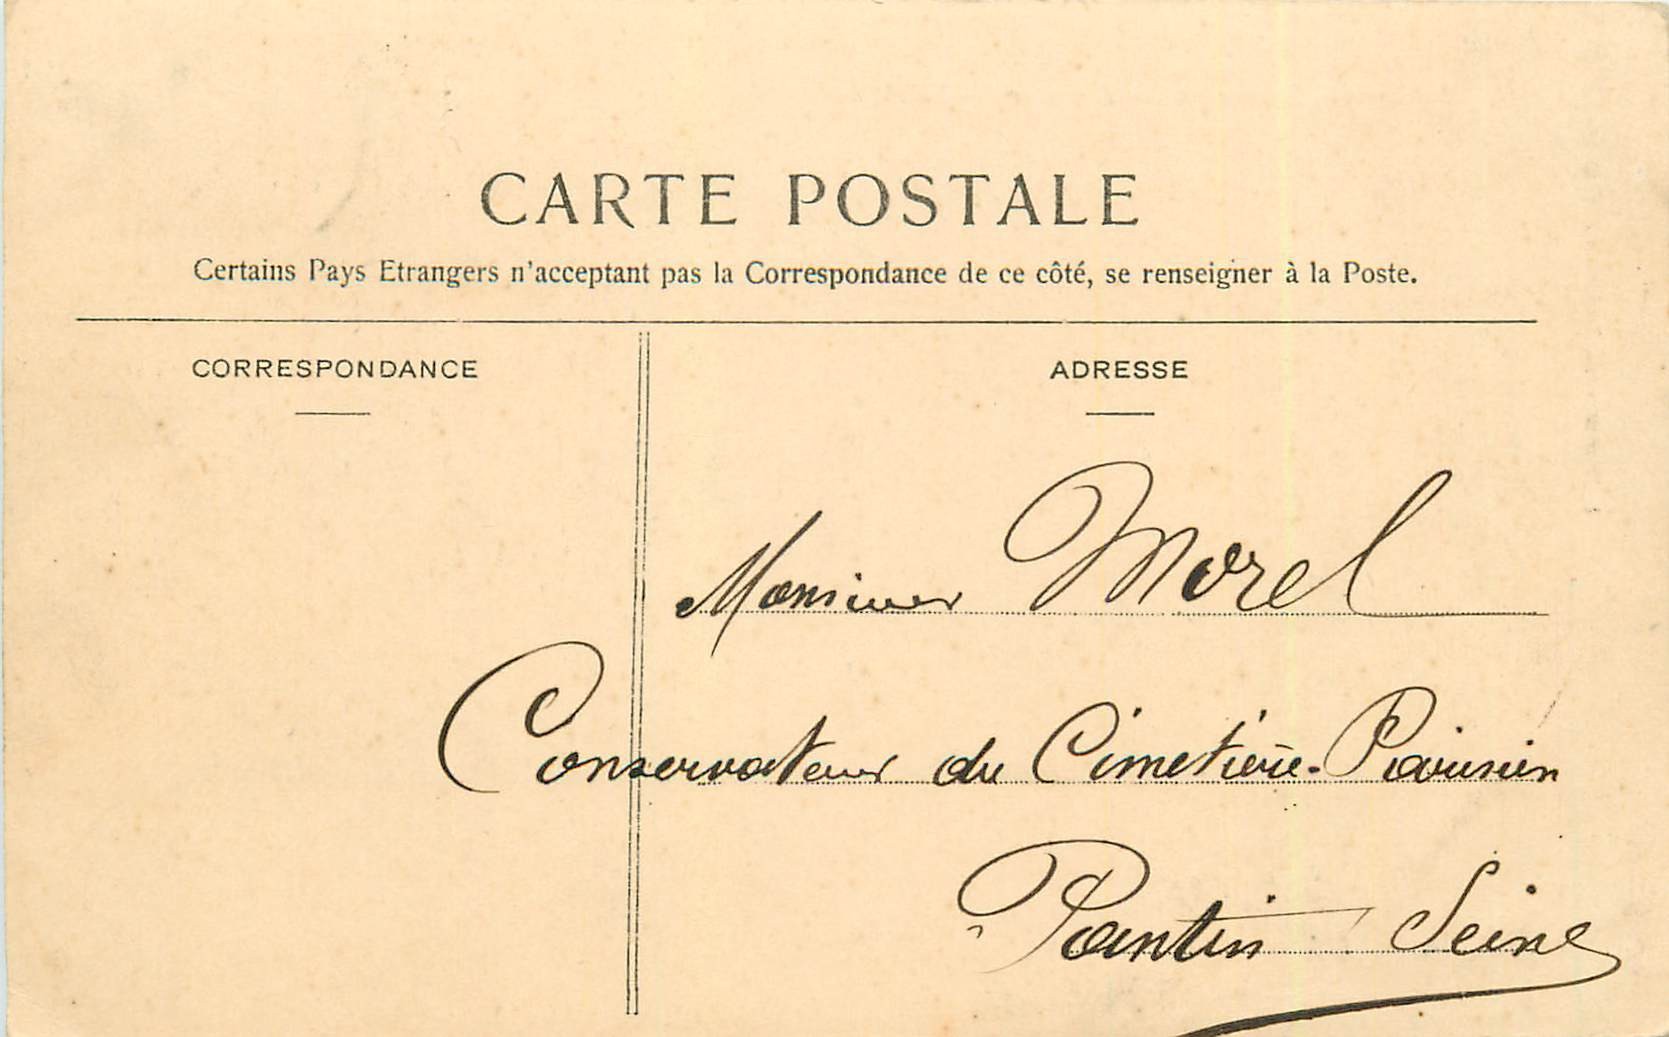 CARTE POSTALE
Certains Pays Etrangers n'acceptant pas la Correspondance de ce côté, se renseigner à la Poste.
CORRESPONDANCE
ADRESSE
Monsieur Morel
Conservateur du Cimetière-Parisien
Pantin Seine